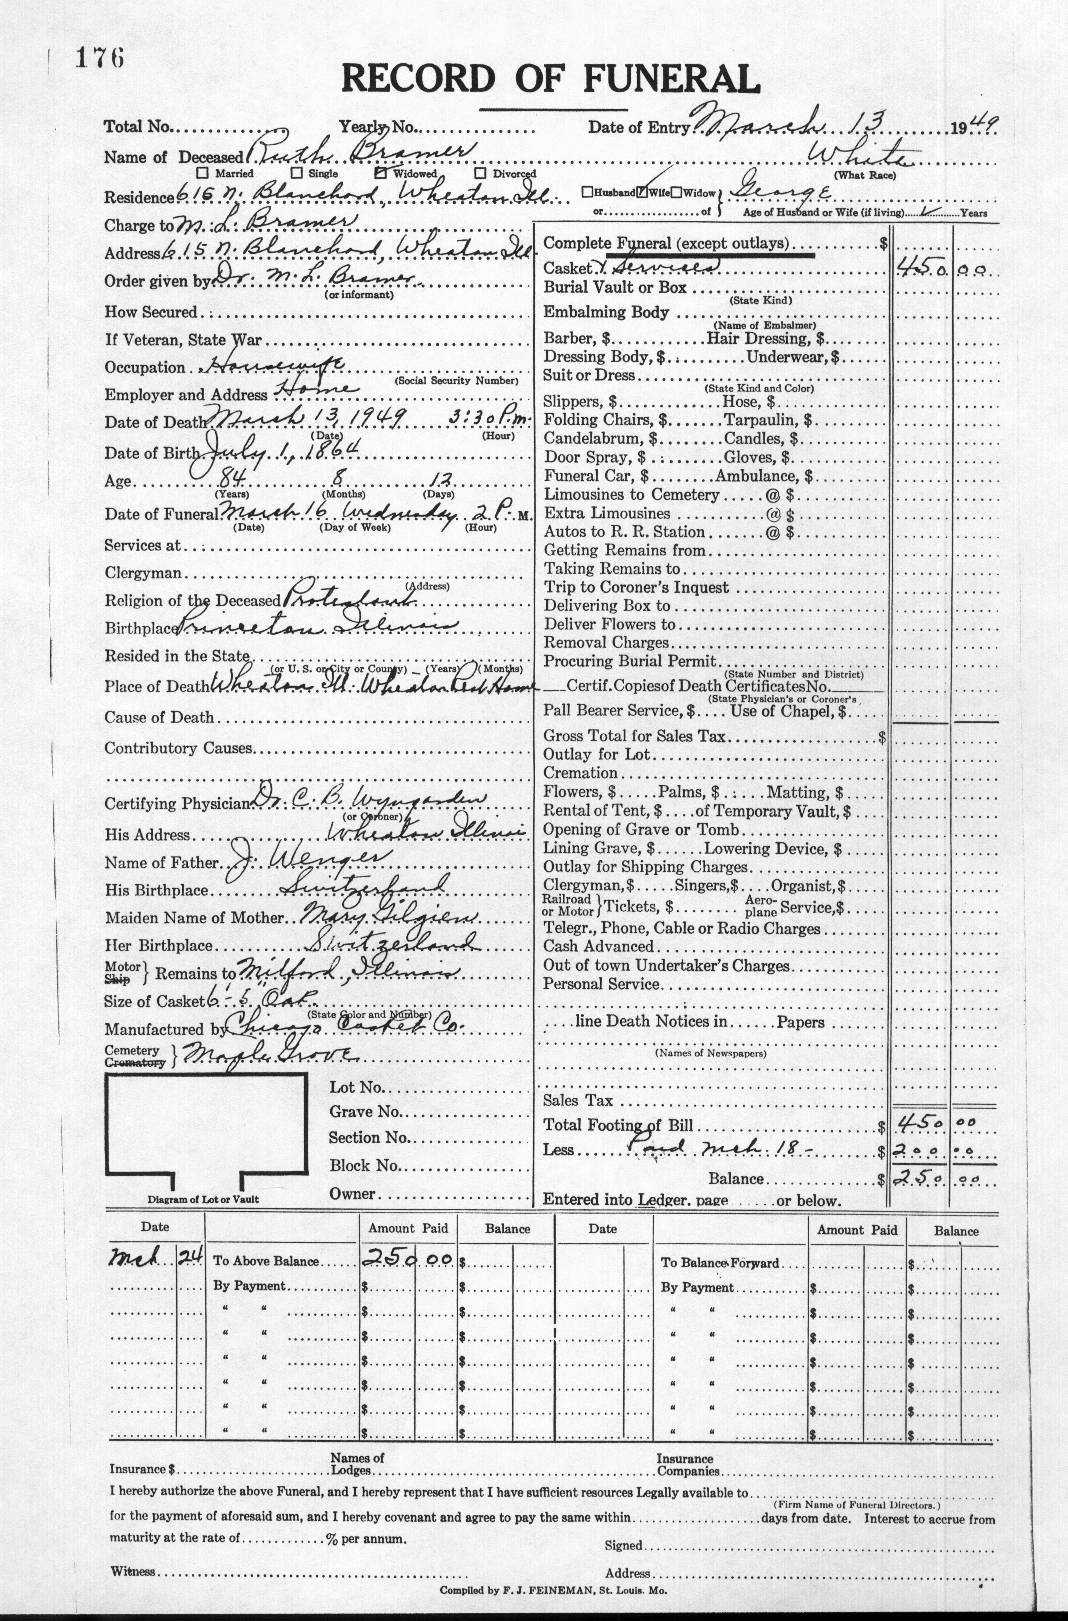 176
RECORD OF FUNERAL
Total No. Yearly No. Date of Entry March 13 1949
Name of Deceased Ruth Bramer White
☐ Married ☐ Single ☑ Widowed ☐ Divorced (What Race)
Residence 615 N. Blanchard, Wheaton Ill. ☐Husband ☑Wife ☐Widow } George
or of } Age of Husband or Wife (if living) ✓ Years
Charge to M. L. Bramer
Address 615 N. Blanchard, Wheaton Ill.
Order given by Dr. M. L. Bramer
(or informant)
How Secured
If Veteran, State War
Occupation Housewife
(Social Security Number)
Employer and Address Home
Date of Death March 13, 1949 3:30 P.m.
(Date) (Hour)
Date of Birth July 1, 1864
Age 84 8 12
(Years) (Months) (Days)
Date of Funeral March 16 Wednesday 2 P. M.
(Date) (Day of Week) (Hour)
Services at
Clergyman
(Address)
Religion of the Deceased Protestant
Birthplace Princeton Illinois
Resided in the State
(or U. S. or City or County) – (Years) (Months)
Place of Death Wheaton Ill. Wheaton Rest Home
Cause of Death
Contributory Causes
Certifying Physician Dr. C. B. Wyngarden
(or Coroner)
His Address Wheaton Illinois
Name of Father J. Wenger
His Birthplace Switzerland
Maiden Name of Mother Mary Gilgien
Her Birthplace Switzerland
Motor
Ship } Remains to Milford, Illinois
Size of Casket 6'-5" Oak
(State Color and Number)
Manufactured by Chicago Casket Co.
Cemetery
Crematory } Maple Grove
Lot No.
Grave No.
Section No.
Block No.
Owner
Diagram of Lot or Vault
Complete Funeral (except outlays) $
Casket & Services 450 00
Burial Vault or Box
(State Kind)
Embalming Body
(Name of Embalmer)
Barber, $ Hair Dressing, $
Dressing Body, $ Underwear, $
Suit or Dress
(State Kind and Color)
Slippers, $ Hose, $
Folding Chairs, $ Tarpaulin, $
Candelabrum, $ Candles, $
Door Spray, $ Gloves, $
Funeral Car, $ Ambulance, $
Limousines to Cemetery @ $
Extra Limousines @ $
Autos to R. R. Station @ $
Getting Remains from
Taking Remains to
Trip to Coroner's Inquest
Delivering Box to
Deliver Flowers to
Removal Charges
Procuring Burial Permit
(State Number and District)
Certif. Copies of Death Certificates No.
(State Physician's or Coroner's
Pall Bearer Service, $ Use of Chapel, $
Gross Total for Sales Tax $
Outlay for Lot
Cremation
Flowers, $ Palms, $ Matting, $
Rental of Tent, $ of Temporary Vault, $
Opening of Grave or Tomb
Lining Grave, $ Lowering Device, $
Outlay for Shipping Charges
Clergyman, $ Singers, $ Organist, $
Railroad or Motor } Tickets, $ Aeroplane Service, $
Telegr., Phone, Cable or Radio Charges
Cash Advanced
Out of town Undertaker's Charges
Personal Service
line Death Notices in Papers
(Names of Newspapers)
Sales Tax
Total Footing of Bill $ 450 00
Less Paid Mch. 18 - $ 200 00
Balance $ 250 00
Entered into Ledger, page or below.
Date Amount Paid Balance Date Amount Paid Balance
Mch 24 To Above Balance 250 00 $ To Balance Forward $
By Payment $ $ By Payment $ $
“ “ $ $ “ “ $ $
“ “ $ $ “ “ $ $
“ “ $ $ “ “ $ $
“ “ $ $ “ “ $ $
“ “ $ $ “ “ $ $
“ “ $ $ “ “ $ $
Insurance $ Names of Lodges Insurance Companies
I hereby authorize the above Funeral, and I hereby represent that I have sufficient resources Legally available to
(Firm Name of Funeral Directors.)
for the payment of aforesaid sum, and I hereby covenant and agree to pay the same within days from date. Interest to accrue from
maturity at the rate of % per annum.
Signed
Witness Address
Compiled by F. J. FEINEMAN, St. Louis. Mo.